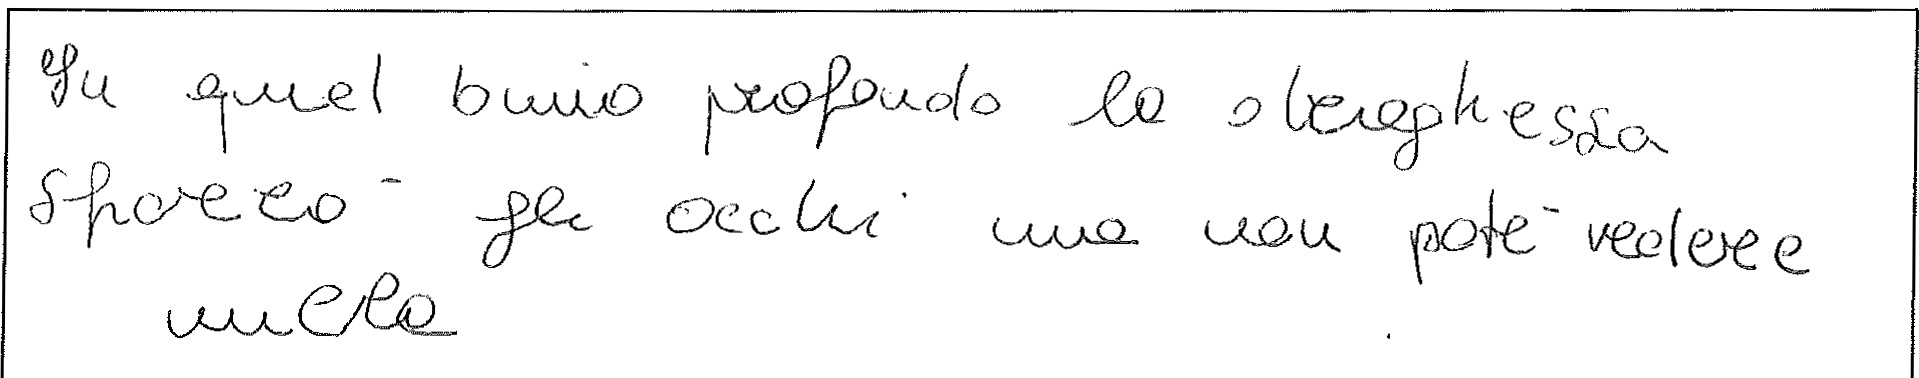 In quel buio profondo la streghessa
sporcò gli occhi ma non potè vedere
nulla